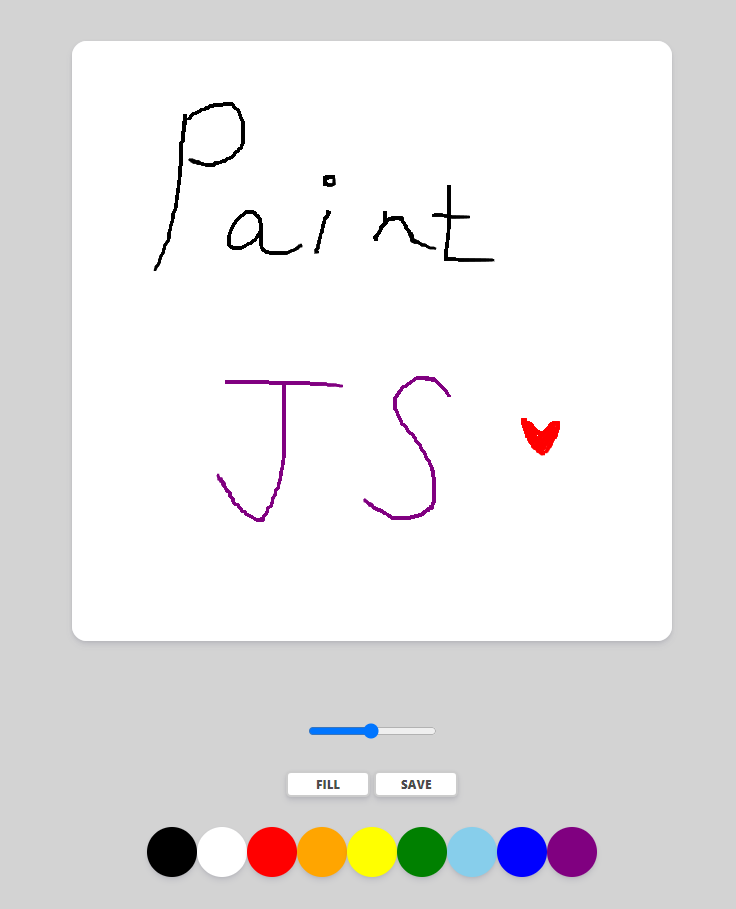 Paint
JS
FILL
SAVE